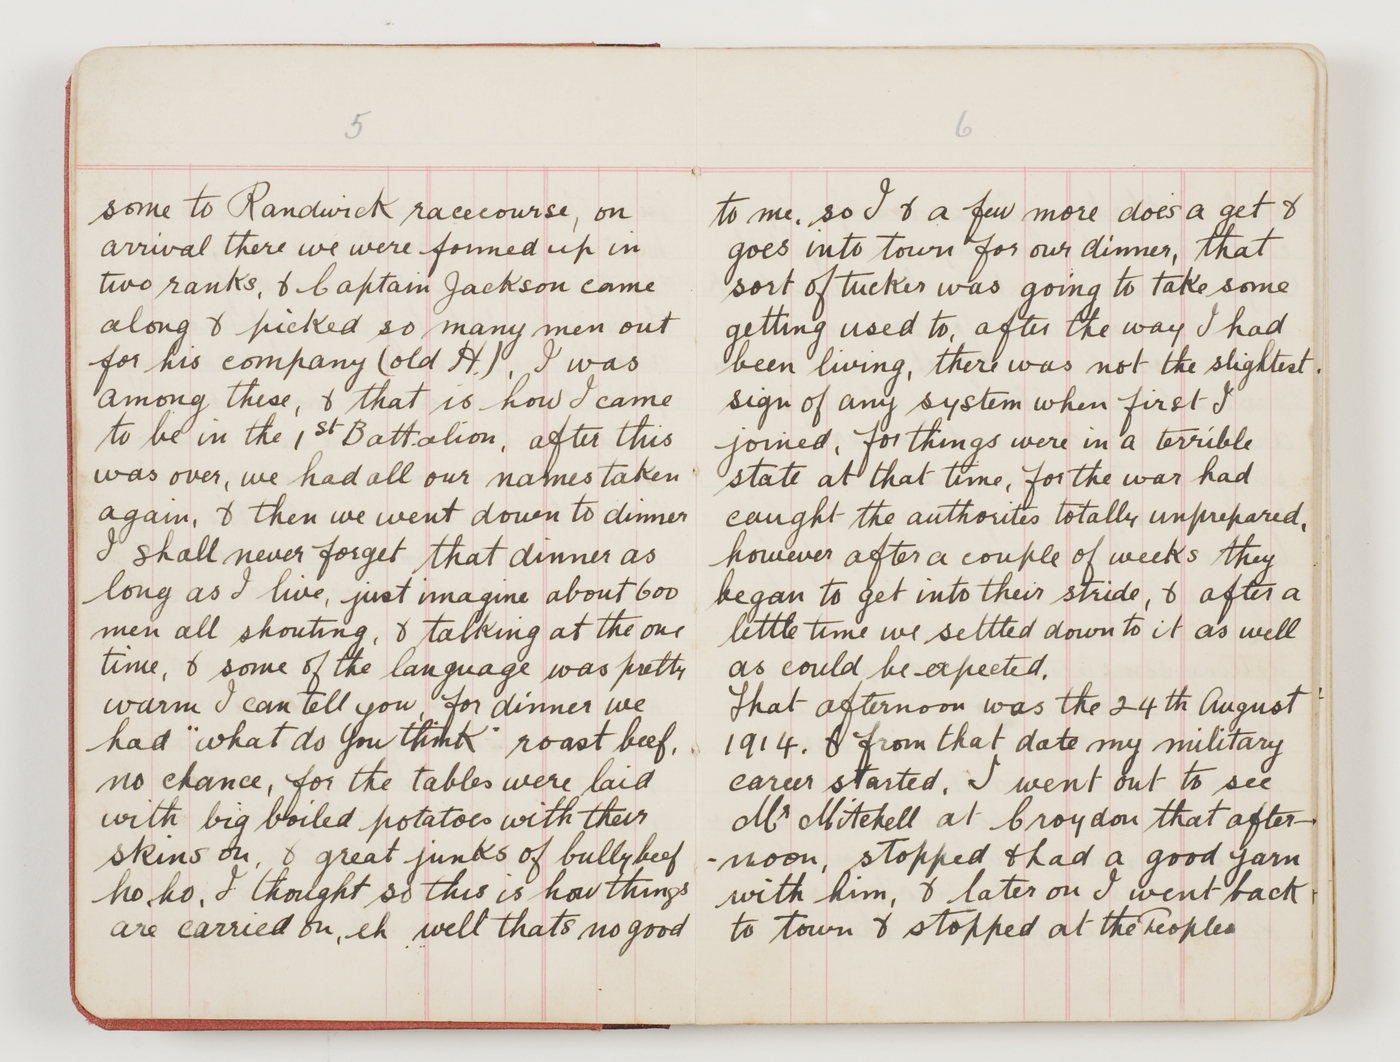 5
some to Randwick racecourse, on
arrival there we were formed up in
two ranks, & Captain Jackson came
along & picked so many men out
for his company (old H.), I was
among these, & that is how I came
to be in the 1st Battalion, after this
was over, we had all our names taken
again, & then we went down to dinner
I shall never forget that dinner as
long as I live, just imagine about 600
men all shouting, & talking at the one
time, & some of the language was pretty
warm I can tell you, for dinner we
had "what do you think" roast beef,
no chance, for the tables were laid
with big boiled potatoes with their
skins on, & great junks of bully beef
ho, ho, I thought so this is how things
are carried on, eh well thats no good
6
to me, so I & a few more does a get &
goes into town for our dinner, that
sort of tucker was going to take some
getting used to, after the way I had
been living, there was not the slightest
sign of any system when first I
joined, for things were in a terrible
state at that time, for the war had
caught the authorites totally unprepared,
however after a couple of weeks they
began to get into their stride, & after a
little time we settled down to it as well
as could be expected.
That afternoon was the 24th August
1914. & from that date my military
career started, I went out to see
Mr Mitchell at Croydon that after-
-noon, stopped & had a good yarn
with him, & later on I went back
to town & stopped at the Peoples